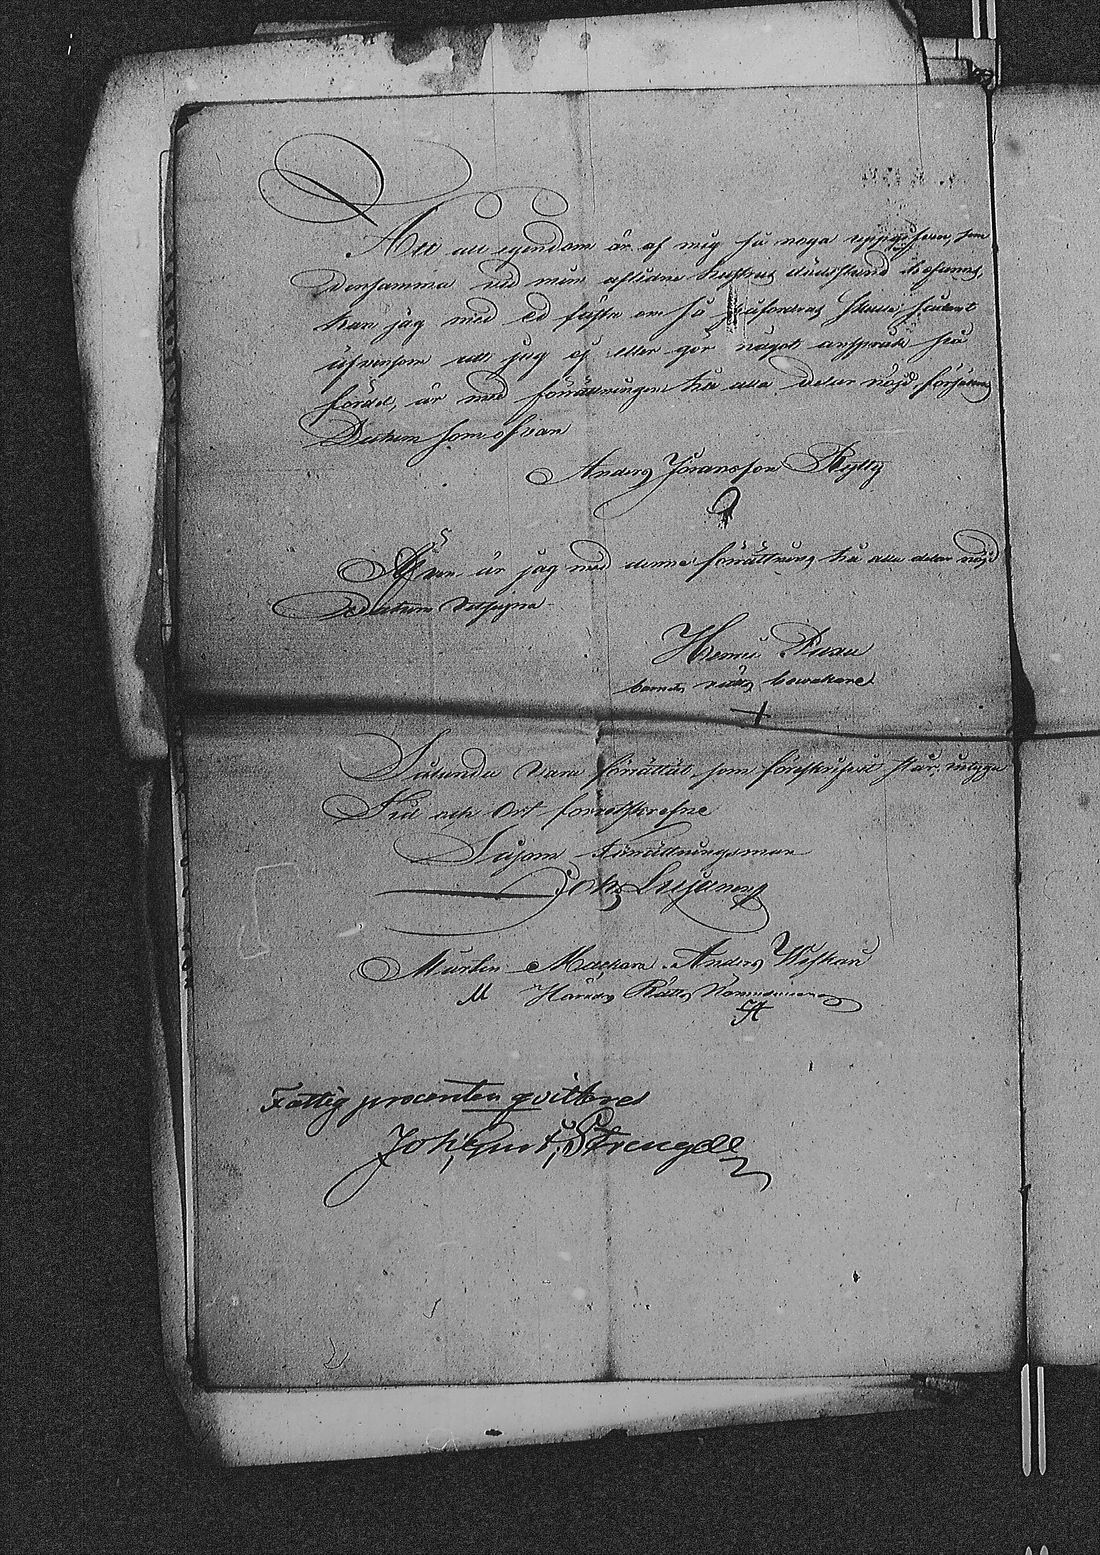 Att all egendom är af mig så noga uppgifven, som
densamma vid min aflidne hustrus dödsstund befanns,
kan jag med ed fästa om så påfordras skulle,
äfvensom att jag ej eller gör något anspråk på
fördel, är med förrättningen till alla delar nöjd, försäkras
Datum som ofvan
Anders Jöransson Rytty
Äfven är jag med denne förrättning till alla delar nöjd
Datum utsupra
Henric Puxu
barnets rätts bewakare
Sålunda vara förrättat, som föreskrifvit står, intyga
Tid och Ort förutskrefne
Såsom Förrättningsman
Joh:s
Martin Anders
M Härads Rätts
Fattig procenten qvitteras
Joh: Gust: Strengell